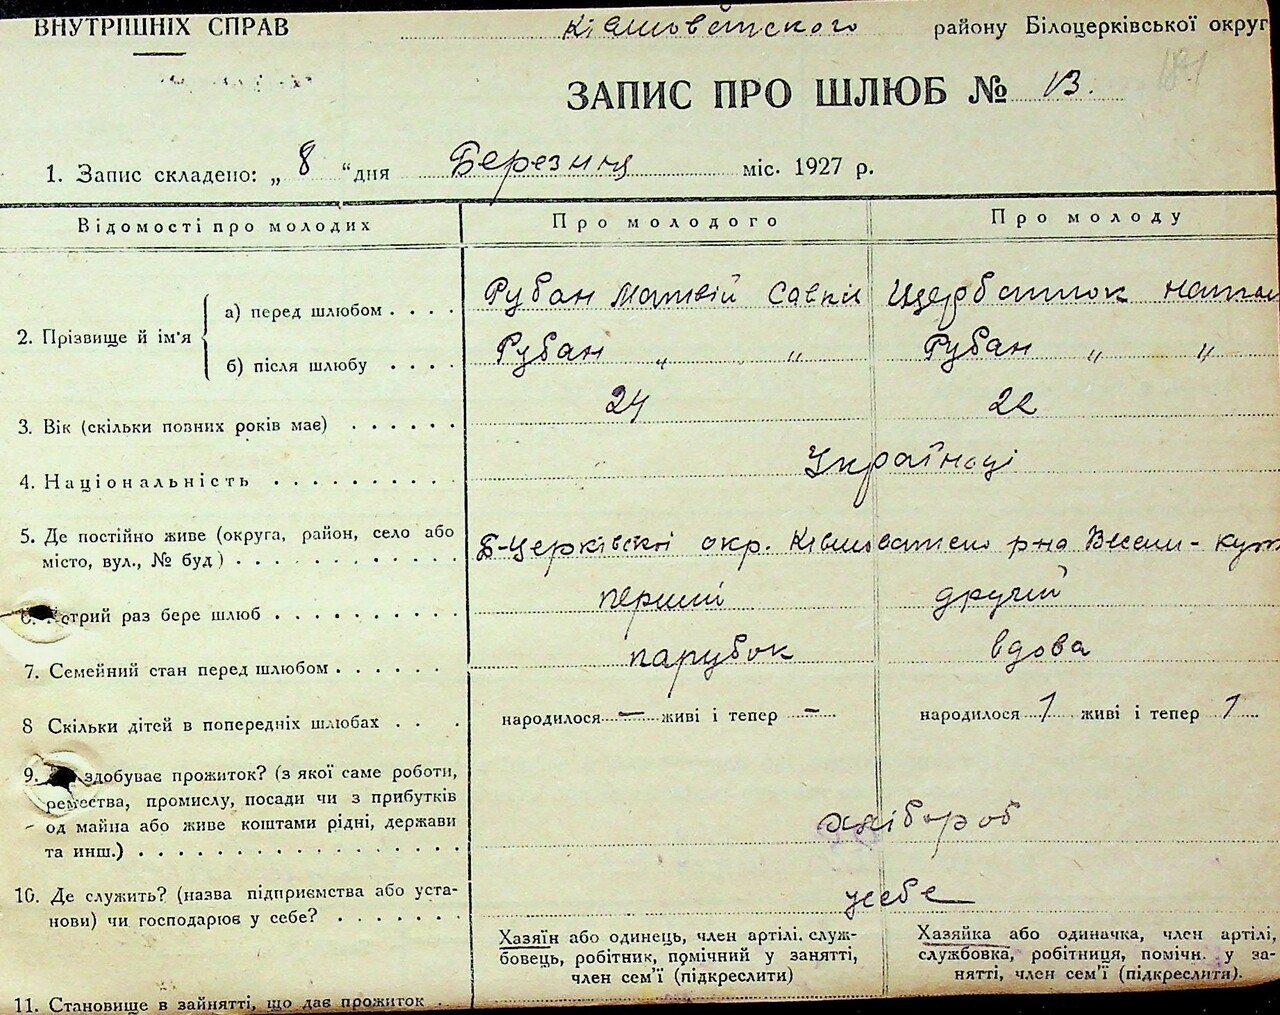 ВНУТРІШНІХ СПРАВ
Ківшоватского району Білоцерківської округ
ЗАПИС ПРО ШЛЮБ № 13.
1. Запис складено: „ 8 “ дня Березня міс. 1927 р.
Відомості про молодих Про молодого Про молоду
2. Прізвище й ім'я
а) перед шлюбом . . . . Рубан Матвій Савки Щербатюк Натал
б) після шлюбу . . . . Рубан „ „ Рубан „ „
3. Вік (скільки повних років має) . . . . . . 24 22
4. Національність . . . . . . . . . . Українці
5. Де постійно живе (округа, район, село або
місто, вул., № буд) . . . . . . . . . . . . Б-Церківскої окр. Ківшоватського р-на Весели-кут
6. Котрий раз бере шлюб . . . . . . . . . . перший другий
7. Семейний стан перед шлюбом . . . . . . парубок вдова
8 Скільки дітей в попередніх шлюбах . . . народилося — живі і тепер — народилося 1 живі і тепер 1
9. здобуває прожиток? (з якої саме роботи,
ремества, промислу, посади чи з прибутків
од майна або живе коштами рідні, держави
та инш.) . . . . . . . . . . . . . . . . хлібороб
10. Де служить? (назва підприємства або уста-
нови) чи господарює у себе? . . . . . . . усебе
Хазяїн або одинець, член артілі, служ-
бовець, робітник, помічний у занятті,
член сем'ї (підкреслити)
Хазяйка або одиначка, член артілі,
службовка, робітниця, помічн. у за-
нятті, член сем'ї (підкреслити).
11. Становище в зайнятті, що дає прожиток .